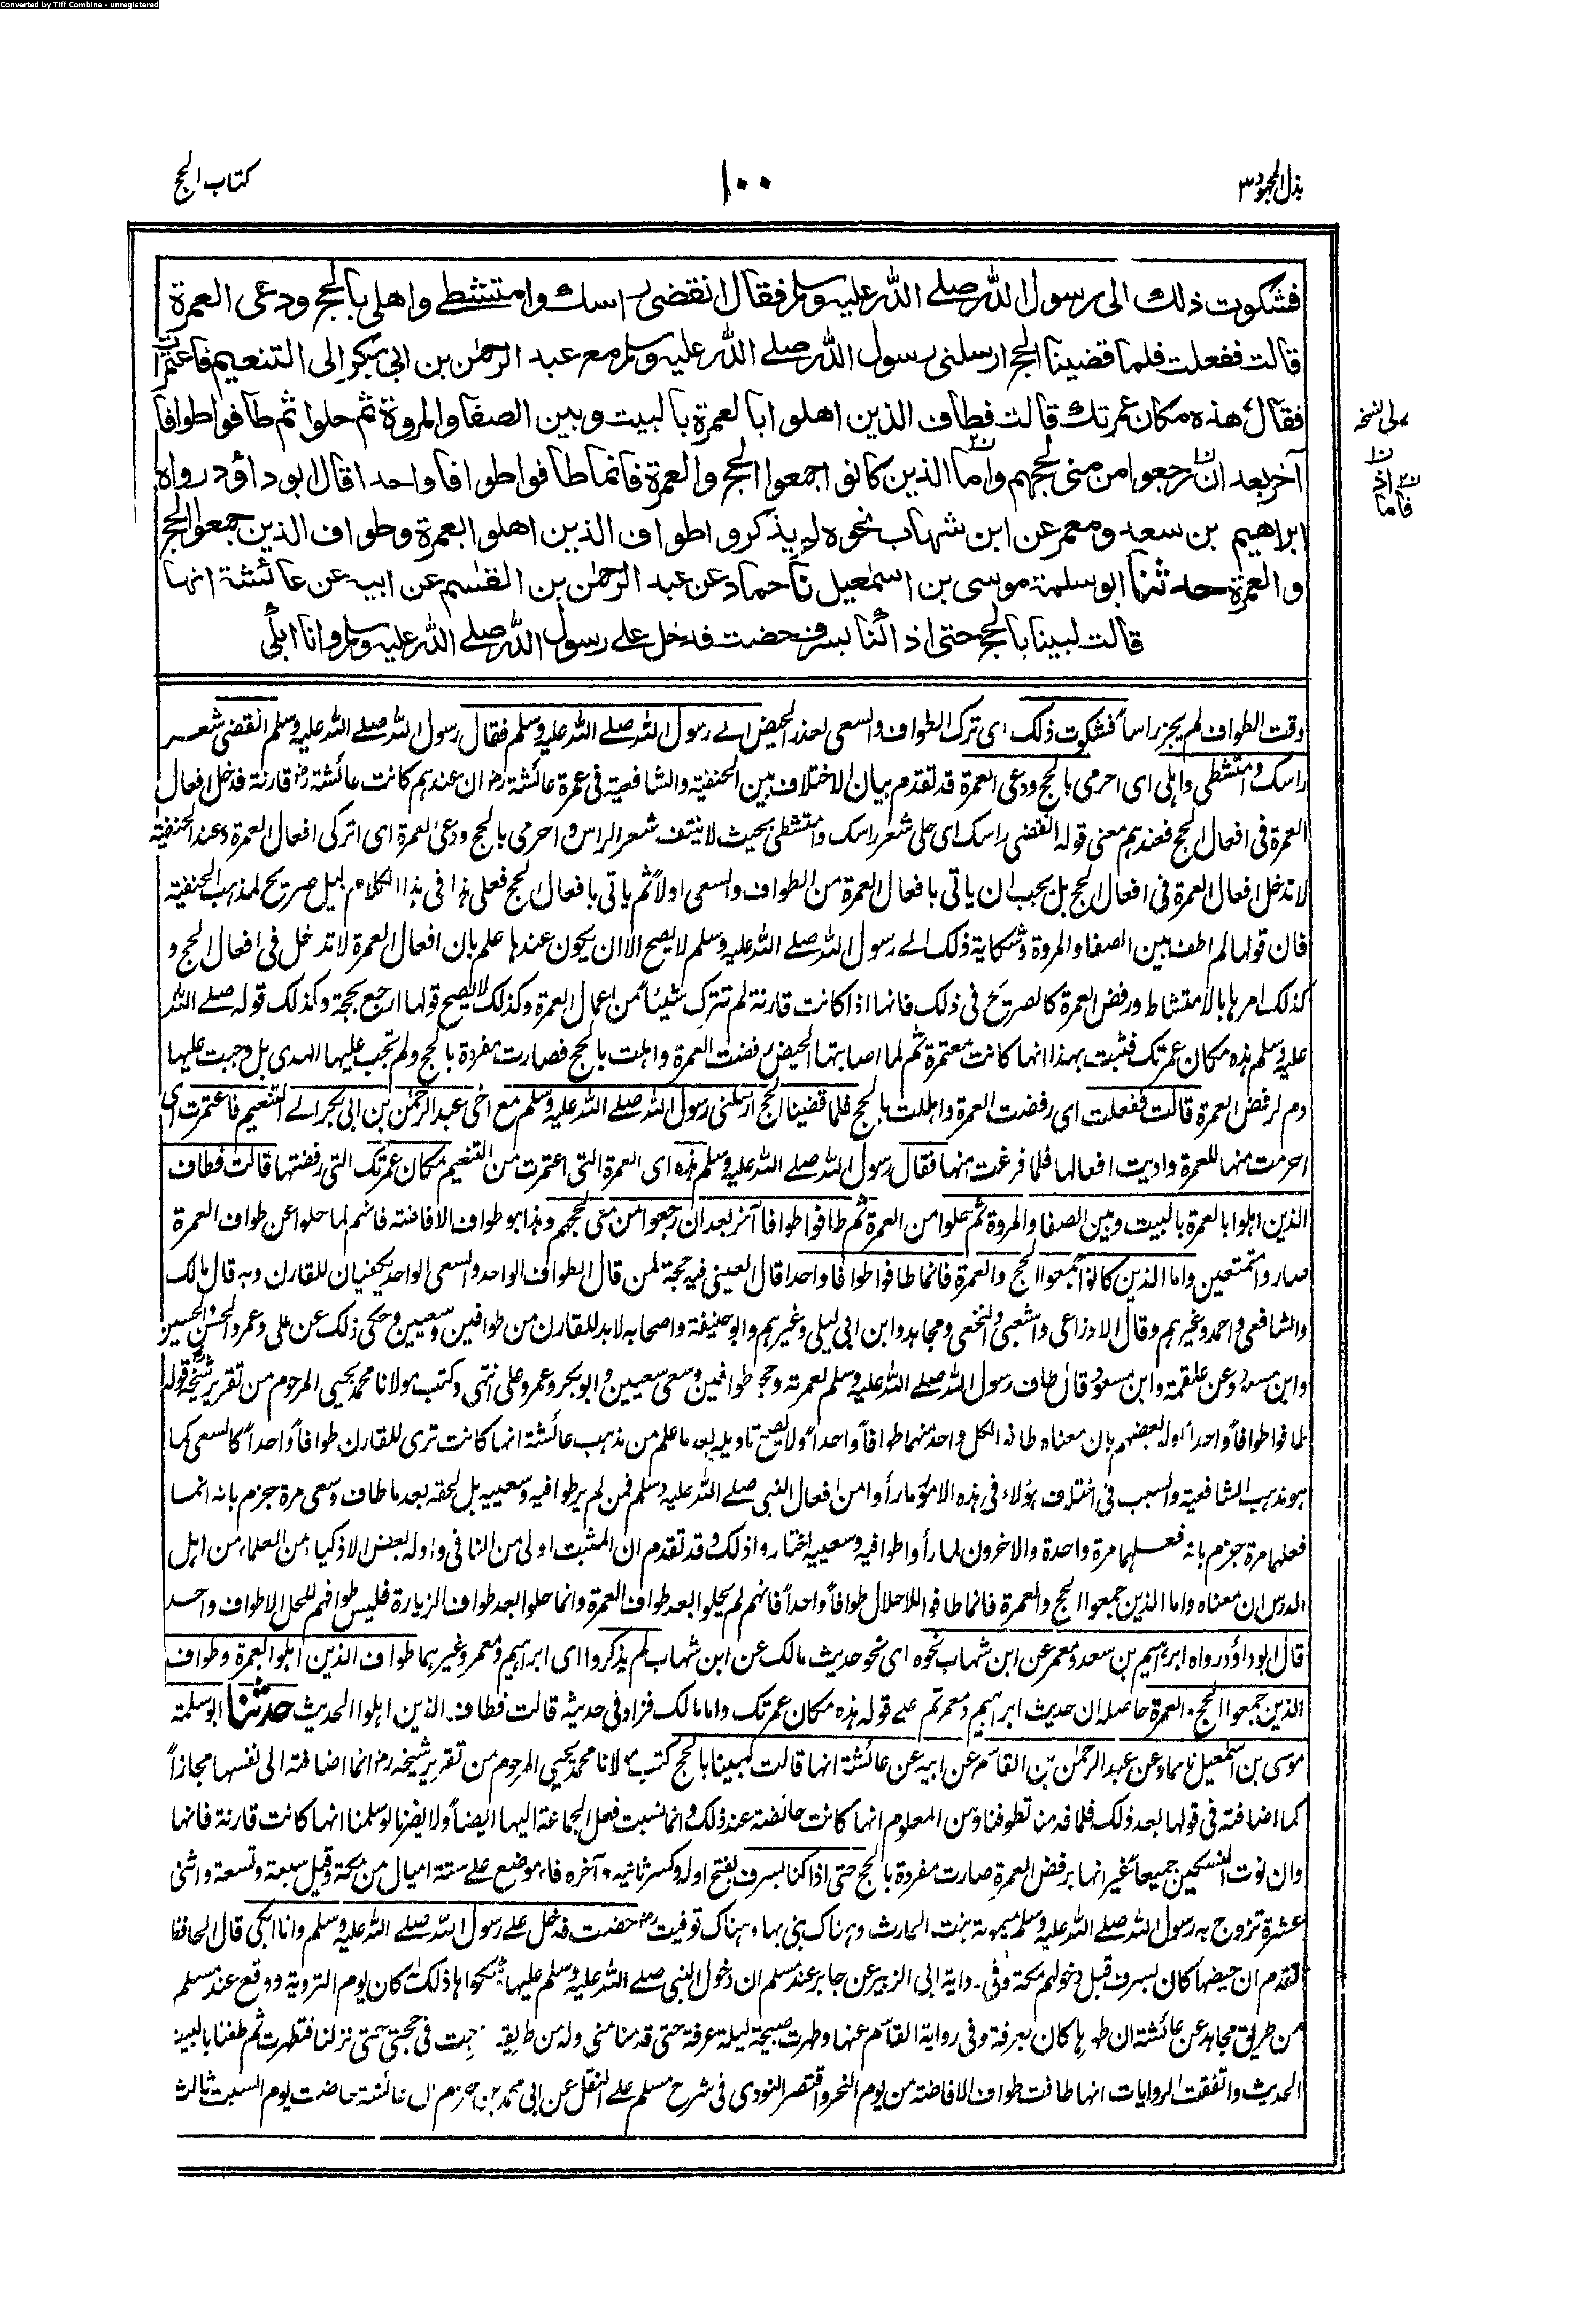 Converted by Tiff Combine - unregistered
بذل المجهود ٣
١٠٠
كتاب الحج
فشكوت ذلك الى رسول الله صلے الله عليه وسلم فقال انقضى راسك وامتشطي واهلي بالحج ودعى العمرة
قالت ففعلت فلما قضينا الحج ارسلنى رسول الله صلے الله عليه وسلم مع عبد الرحمٰن بن ابي بكر الى التنعيم فاعتمرت
فقال هذه مكان عمرتك قالت فطاف الذين اهلوا بالعمرة بالبيت وبين الصفا والمروة ثم حلوا ثم طافوا طوافا
آخر بعد ان رجعوا من منى لحجهم واما الذين كانوا جمعوا الحج والعمرة فانما طافوا طوافا واحدا قال ابو داؤد رواه
ابراهيم بن سعد ومعمر عن ابن شهاب نحوه لم يذكروا طواف الذين اهلوا بالعمرة وطواف الذين جمعوا الحج
والعمرة حدثنا ابو سلمة موسى بن اسمٰعيل نا حماد عن عبد الرحمٰن بن القسم عن ابيه عن عائشة انها
قالت لبينا بالحج حتى اذا كنا بسرف حضت فدخل علے رسول الله صلے الله عليه وسلم وانا ابكى
وقت الطواف لم يجز راسا فشكوت ذلك اى ترك الطواف والسعى لعذر الحيض الے رسول الله صلے الله عليه وسلم فقال رسول الله صلے الله عليه وسلم انقضى شعر
راسك وامتشطى واهلى اى احرمى بالحج ودعى العمرة قد تقدم بيان الاختلاف بين الحنفية والشافعية فى عمرة عائشة رض ان عندهم كانت عائشة رض قارنة فدخل افعال
العمرة فى افعال الحج فعندهم معنى قوله انقضى راسك اى حلى شعر راسك وامتشطى بحيث لا ينتف شعر الراس واحرمى بالحج ودعى العمرة اى اتركى افعال العمرة وعند الحنفية
لا تدخل افعال العمرة فى افعال الحج بل يجب ان ياتى بافعال العمرة من الطواف والسعى اولاً ثم ياتى بافعال الحج فعلى هذا فى هذا الكلام دليل صريح لمذهب الحنفية
فان قولها لم اطف بين الصفا والمروة وشكاية ذلك الے رسول الله صلے الله عليه وسلم لا يصح الا ان يكون عندها علم بان افعال العمرة لا تدخل فى افعال الحج و
كذلك امرها بالامتشاط ورفض العمرة كالصريح فى ذلك فانها اذا كانت قارنة لم تترك شيئا من اعمال العمرة وكذلك لا يصح قولها ارجع بحجة وكذلك قوله صلے الله
عليه وسلم هذه مكان عمرتك فثبت بهذا انها كانت معتمرة ثم لما اصابتها الحيض رفضت العمرة واهلت بالحج فصارت مفردة بالحج ولم تجب عليها الهدى بل وجبت عليها
دم لرفض العمرة قالت ففعلت اى رفضت العمرة واهللت بالحج فلما قضينا الحج ارسلنى رسول الله صلے الله عليه وسلم مع اخى عبد الرحمٰن بن ابى بكر الے التنعيم فاعتمرت اى
احرمت منها للعمرة واديت افعالها فلما فرغت منها فقال رسول الله صلے الله عليه وسلم هذه اى العمرة التى اعتمرت من التنعيم مكان عمرتك التى رفضتها قالت فطاف
الذين اهلوا بالعمرة بالبيت وبين الصفا والمروة ثم حلوا من العمرة ثم طافوا طوافا آخر بعد ان رجعوا من منى لحجهم وهذا هو طواف الافاضة فانهم لما حلوا عن طواف العمرة
صاروا متمتعين واما الذين كانوا جمعوا الحج والعمرة فانما طافوا طوافا واحدا قال العينى فيه حجة لمن قال الطواف الواحد والسعى الواحد يكفيان للقارن وبه قال مالك
والشافعى واحمد وغيرهم وقال الاوزاعى والشعبى والنخعى ومجاهد وابن ابى ليلى وغيرهم وابو حنيفة واصحابه لا بد للقارن من طوافين وسعيين وحكى ذلك عن على وعمر والحسن والحسين
وابن مسعود وعن علقمة وابن مسعود قال طاف رسول الله صلے الله عليه وسلم لعمرته وحجه طوافين وسعى سعيين وابو بكر وعمر وعلى انتهى وكتب مولانا محمد يحيى المرحوم من تقرير شيخه قوله
طافوا طوافاً واحدا اوله بعضهم بان معناه طاف لكل واحد منهما طوافاً واحداً ولا يصح تاويله بعد ما علم من مذهب عائشة انها كانت ترى للقارن طوافاً واحداً كالسعى كما
هو مذهب الشافعية والسبب فى اختلاف هؤلاء فى هذه الامور ما رأوا من افعال النبى صلے الله عليه وسلم فمن لم ير طوافيه وسعييه بل لحقه بعد ما طاف وسعى مرة جزم بانه انما
فعلهما مرة جزم بانه فعلهما مرة واحدة والاخرون لما رأوا طوافيه وسعييه اختاروا ذلك وقد تقدم ان المثبت اولى من النافى واوله بعض الاذكياء من العلماء من اهل
الدرس ان معناه واما الذين جمعوا الحج والعمرة فانما طافوا للاحلال طوافاً واحداً فانهم لم يحلوا بعد طواف العمرة وانما حلوا بعد طواف الزيارة فليس طوافهم للحل الا طواف واحد
قال ابو داؤد رواه ابراهيم بن سعد ومعمر عن ابن شهاب نحوه اى نحو حديث مالك عن ابن شهاب لم يذكروا اى ابراهيم ومعمر وغيرهما طواف الذين اهلوا بالعمرة وطواف
الذين جمعوا الحج والعمرة حاصله ان حديث ابراهيم ومعمر تم علے قوله هذه مكان عمرتك واما مالك فزاد فى حديثه قالت فطاف الذين اهلوا الحديث حدثنا ابو سلمة
موسى بن اسمٰعيل نا حماد عن عبد الرحمٰن بن القاسم عن ابيه عن عائشة انها قالت لبينا بالحج كتب مولانا محمد يحيى المرحوم من تقرير شيخه رض انما اضافته الى نفسها مجازاً
كما اضافته فى قولها بعد ذلك فلما قدمنا تطوفنا ومن المعلوم انها كانت حائضة عند ذلك وانما نسبت فعل الجماعة اليها ايضاً ولا يضرنا لو سلمنا انها كانت قارنة فانها
وان نوت النسكين جميعاً غير انها برفض العمرة صارت مفردة بالحج حتى اذا كنا بسرف بفتح اوله وكسر ثانيه وآخره فاء موضع علے ستة اميال من مكة وقيل سبعة وتسعة واثنى
عشرة تزوج به رسول الله صلے الله عليه وسلم ميمونة بنت الحارث وهناك بنى بها وهناك توفيت رض حضت فدخل علے رسول الله صلے الله عليه وسلم وانا ابكى قال الحافظ
تقدم ان حيضها كان بسرف قبل دخولهم مكة وفى رواية ابى الزبير عن جابر عند مسلم ان دخول النبى صلے الله عليه وسلم عليها وشكواها ذلك كان يوم التروية ووقع عند مسلم
من طريق مجاهد عن عائشة ان طهرها كان بعرفة وفى رواية القاسم عنها وطهرت صبيحة ليلة عرفة حتى قدمنا منى وله من طريقه فخرجت فى حجتى حتى نزلنا فتطهرت ثم طفنا بالبيت
الحديث واتفقت الروايات انها طافت طواف الافاضة من يوم النحر واقتصر النووى فى شرح مسلم علے النقل عن ابى محمد بن حزم ان عائشة حاضت يوم السبت ثالث